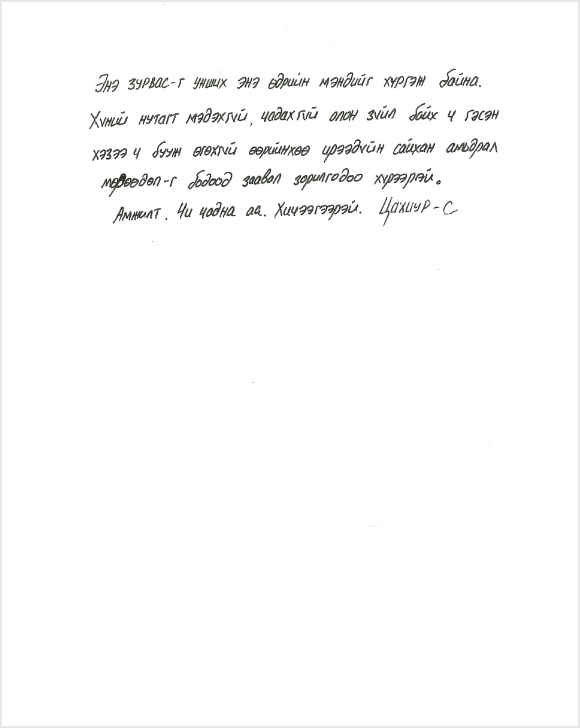 Энэ зурвас-г унших энэ өдрийн мэндийг хүргэж байна.
Хүний нутагт мэдэхгүй, чадахгүй олон зүйл байх ч гэсэн
хэзээ ч бууж өгөхгүй өөрийнхөө ирээдүйн сайхан амьдрал
мөрөөдөл-г бодоод заавал зорилгодоо хүрээрэй.
Амжилт. Чи чадна аа. Хичээгээрэй. Цахиур-С